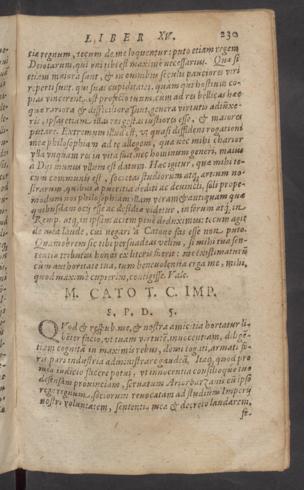 LIBER XV. 230
tia regnum, tecum de me loquentur: puto etiam regem
Deiotarum, qui uni tibi est maximè necessarius. Quæ si
etiam maiora sunt, & in omnibus seculis pauciores viri
reperti sunt, qui suas cupiditates, quàm qui hostium co-
pias vincerent, est profectò tuum, cum ad res bellicas hæc
quæ rariora & difficiliora sunt, genera virtutis adiunxe-
ris, ipsas etiam illas res gestas iustiores esse, & maiores
putare. Extremum illud est, vt quasi diffidens rogationi
meæ philosophiam ad te allegem, qua nec mihi charior
vlla vnquam res in vita fuit, nec hominum generi, maius
à Diis munus vllum est datum. Hæc igitur, quæ mihi te-
cum communis est, societas studiorum atq; artium no-
strarum, quibus à pueritia dediti ac deuincti, soli prope-
modum nos philosophiam illam veram & antiquam quæ
quibusdam ocij esse ac desidiæ videtur, in forum atq; in
Remp. atq; in ipsam aciem penè deduximus: tecum agit
de mea laude, cui negari à Catone fas esse non puto.
Quamobrem sic tibi persuadeas velim, si mihi tua sen-
tentia tributus honos ex literis fuerit: me existimaturũ
cùm authoritate tua, tum beneuolentia erga me, mihi,
quod maximè cupierim, contigisse. Vale.
M. CATO T. C. IMP.
S. P. D. 5.
QVod & respub. me, & nostra amicitia hortatur li-
benter facio, vt tuam virtutẽ, innocentiam, diligẽ-
tiam cognitã in maximis rebus, domi togati, armati fo-
ris pari industria administrare gaudeã. Itaq; quod pro
meo iudicio facere potui, vt innocentia consilioque tuo
defensam prouinciam, seruatum Ariobarzanis cũ ipso
rege regnum, sociorum reuocatam ad studium Imperij
nostri voluntatem, sententia mea & decreto laudarem,